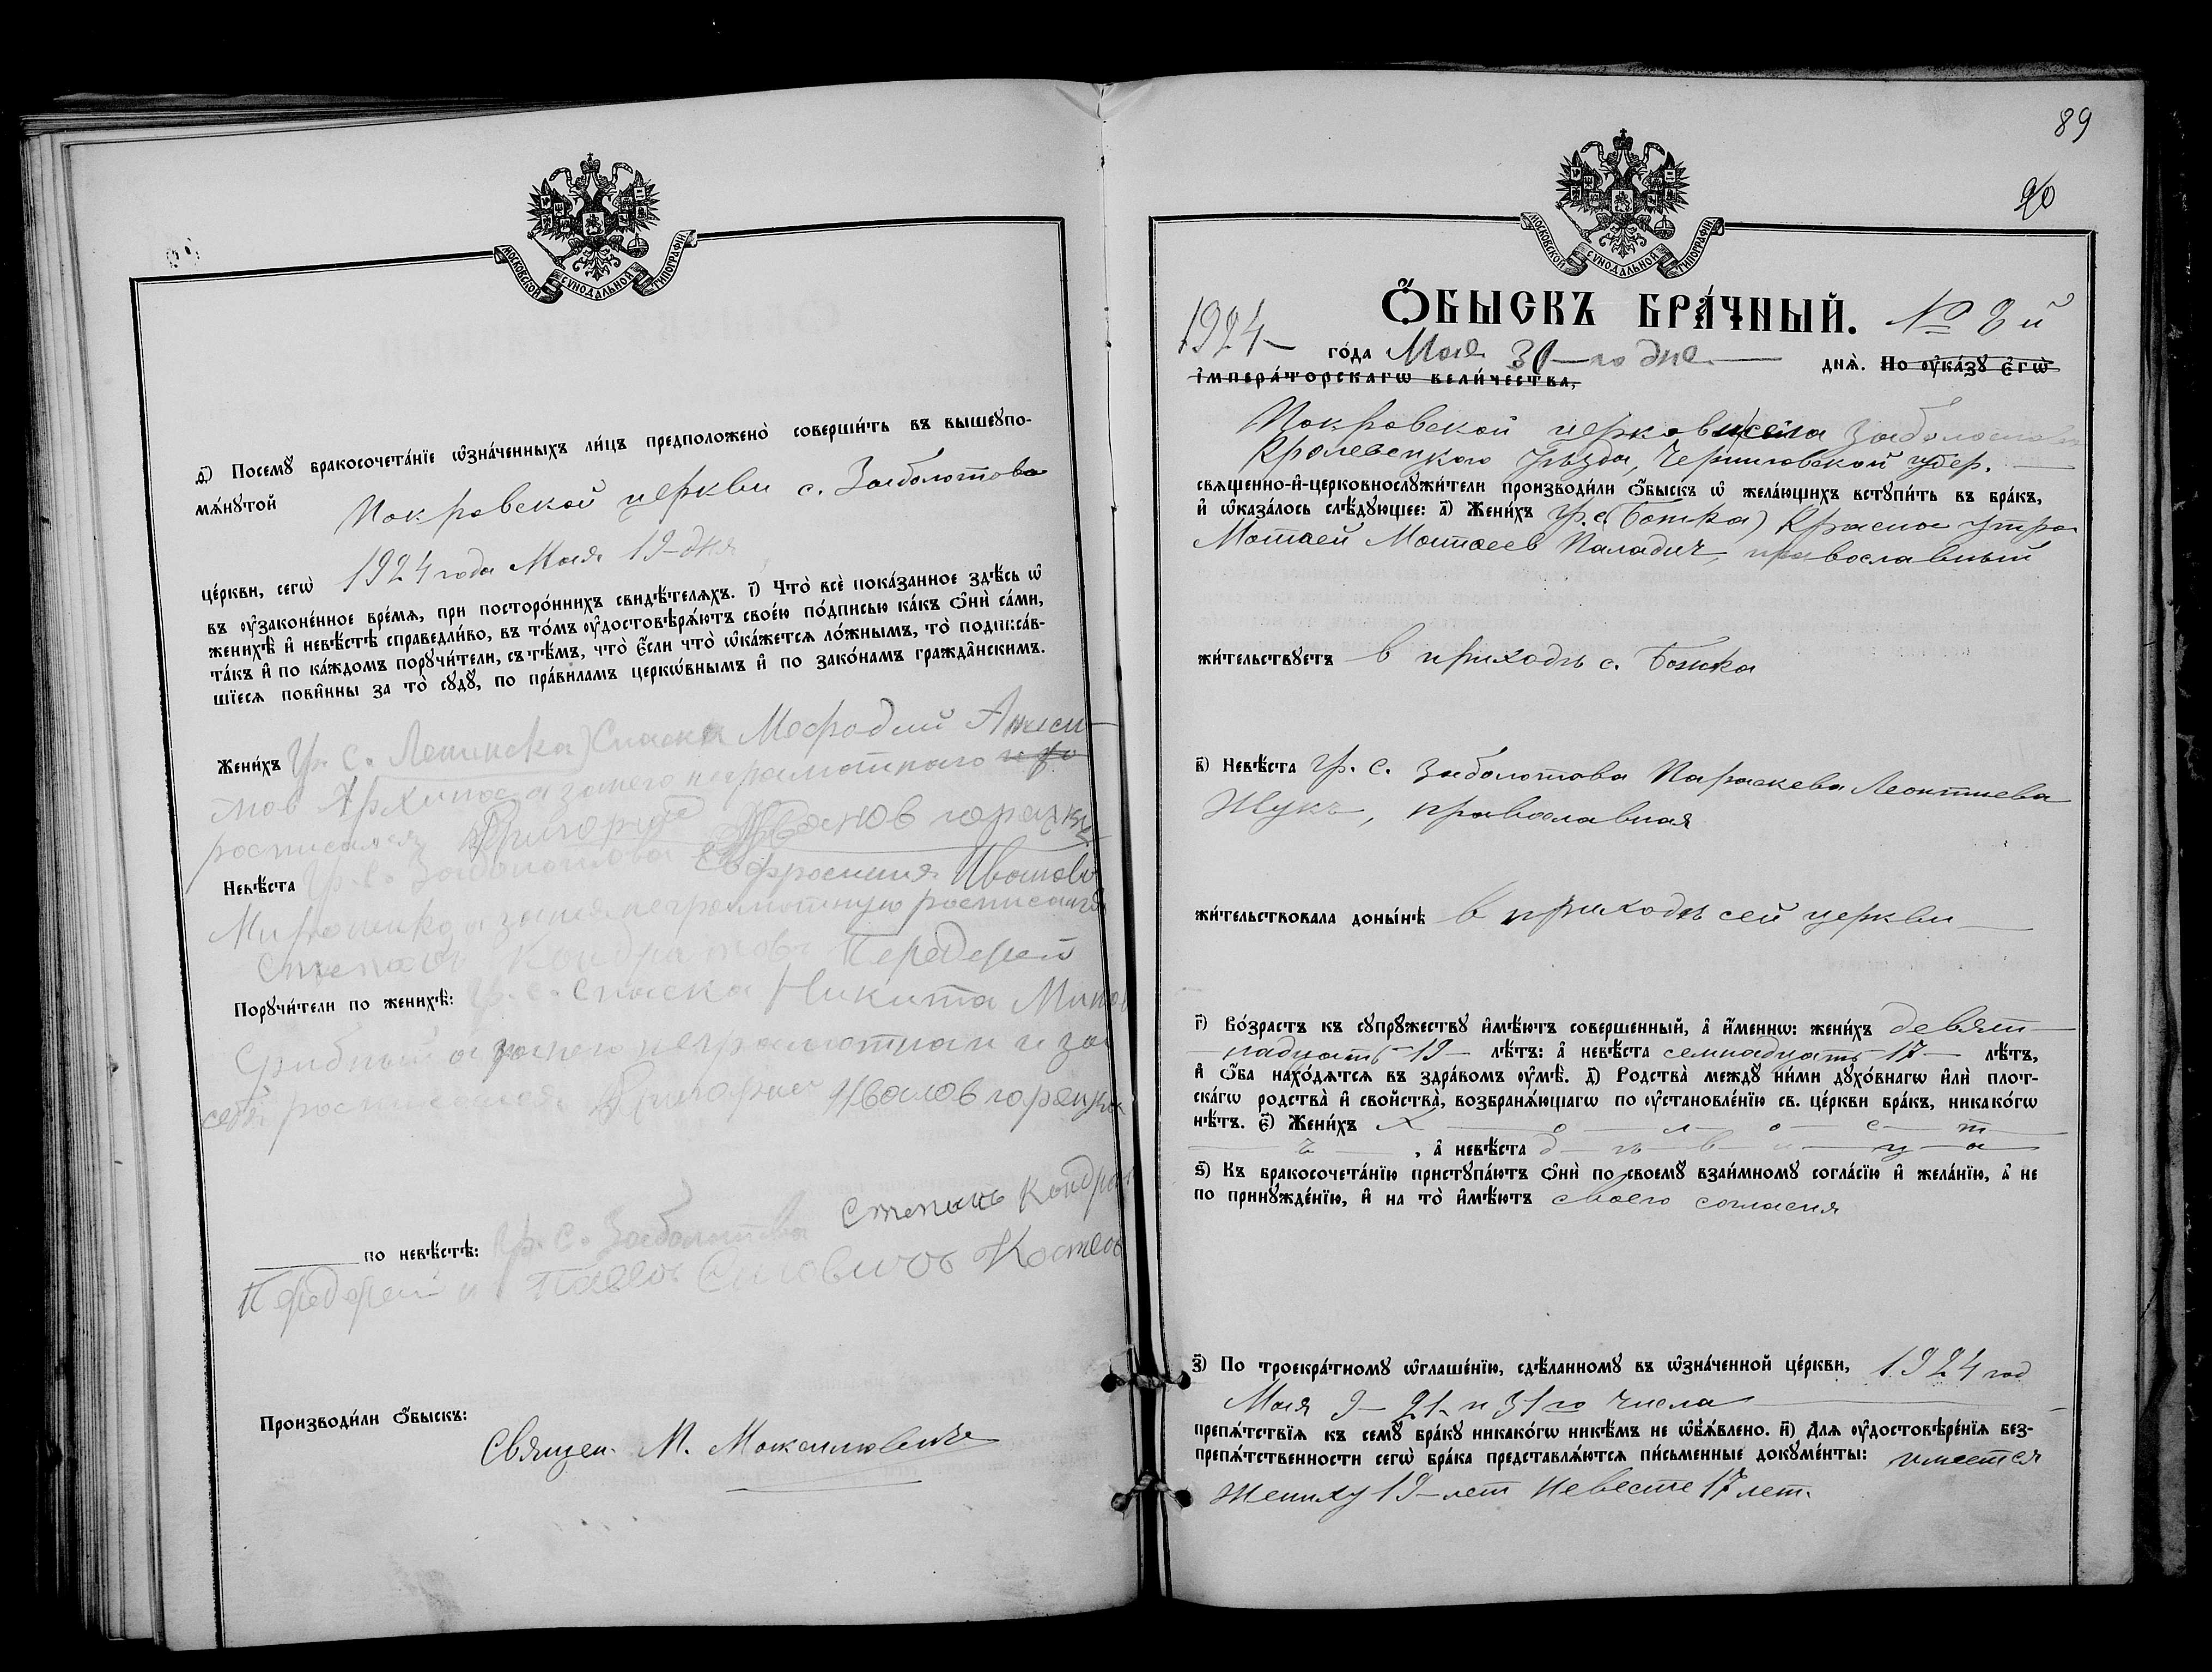 МОСКОВСКОЙ СѴНОДАЛЬНОЙ ТИПОГРАФІИ
д҃) Посемꙋ̀ бракосочета́нїе ѡ҆зна́ченныхъ ли́цъ предположено̀ соверши́ть въ вышеꙋпо-
мѧ́нꙋтой Покровской церкви с. Заболотово
це́ркви, сегѡ̀ 1924 года Мая 19-дня
въ ᲂу҆зако́ненное вре́мѧ, при посторо́ннихъ свидѣ́телѧхъ. і҃) Что̀ всѐ пока́занное здѣ́сь ѡ҆
женихѣ̀ и҆ невѣ́стѣ справедли́во, въ то́мъ ᲂу҆достовѣрѧ́ютъ свое́ю по́дписью ка́къ ѻ҆нѝ са́ми,
та́къ и҆ по ка́ждомъ порꙋчи́тели, съ тѣ́мъ, что̀ є҆́сли что̀ ѡ҆ка́жетсѧ ло́жнымъ, то̀ подписа́в-
шїесѧ пови́нны за то̀ сꙋдꙋ̀, по пра́виламъ церко́внымъ и҆ по зако́намъ гражда́нскимъ.
Жени́хъ Гр. с. Ленинска) Спаска Мефодий Аниси-
мов Архипов а за него неграмотного
росписался Григорий Иванов горецки
Невѣ́ста Гр. с. Заболотова Евфросиния Иванов
Мироненко а за нея неграмотную росписался
Степанъ Кондратовъ Передерей
Порꙋчи́тели по женихѣ̀: Гр. с. Спаска Никита
Грибный а за него неграмотнаи и за
себя росписался Григорий Иванов горецки
по невѣ́стѣ: Гр. с. Заболотова Степанъ Кондрат
Передерей и Павел Костюк
Производи́ли ѻ҆́быскъ:
Священ. М. Максимовичъ
89
90
МОСКОВСКОЙ СѴНОДАЛЬНОЙ ТИПОГРАФІИ
Ѻ҆́БЫСКЪ БРА́ЧНЫЙ. № 8 й
1924 го́да Мая 31-го дня днѧ̀. По ᲂу҆ка́зꙋ є҆гѡ̀
і҆мпера́торскагѡ вели́чества,
Покровской церкви села Заболотово
Кролевецкого Уезда, Черниговской губер.
свѧще́нно-и҆-церковнослꙋжи́тели производи́ли ѻ҆́быскъ ѡ҆ жела́ющихъ встꙋпи́ть въ бра́къ,
и҆ ѡ҆каза́лось слѣ́дꙋющее: а҃) Жени́хъ гр. с. (Ботка) Красное утро
Матвей Матвеев Паладич, православный
жи́тельствꙋетъ в приходѣ с. Ботка
в҃) Невѣ́ста гр. с. Заболотова Параскева Леонтиева
Жукъ, православная
жи́тельствовала доны́нѣ в приходѣ сей церкви
г҃) Во́зрастъ къ сꙋпрꙋ́жествꙋ и҆мѣ́ютъ соверше́нный, а҆ и҆́меннѡ: жени́хъ девят-
надцать 19 лѣ́тъ: а҆ невѣ́ста семнадцать 17 лѣ́тъ,
и҆ ѻ҆́ба нахо́дѧтсѧ въ здра́вомъ ᲂу҆мѣ̀. д҃) Родства̀ междꙋ̀ ни́ми дꙋхо́внагѡ и҆лѝ плот-
ска́гѡ родства̀ и҆ свойства̀, возбранѧ́ющагѡ по ᲂу҆становле́нїю св. це́ркви бра́къ, никако́гѡ
нѣ́тъ. є҃) Жени́хъ х о л о с т
ъ, а҆ невѣ́ста д ѣ в и ц а
ѕ҃) Къ бракосочета́нїю пристꙋпа́ютъ ѻ҆нѝ по своемꙋ̀ взаи́мномꙋ согла́сїю и҆ жела́нїю, а҆ не
по принꙋжде́нїю, и҆ на то̀ и҆мѣ́ютъ своего согласия
з҃) По троекра́тномꙋ ѡ҆глаше́нїю, сдѣ́ланномꙋ въ ѡ҆зна́ченной це́ркви, 1924 год
Мая 9- 21- и 31 го числа
препѧ́тствїѧ къ семꙋ̀ бра́кꙋ никако́гѡ никѣ́мъ не ѡ҆б̾ѧ́влено. и҃) Длѧ ᲂу҆достовѣре́нїѧ без-
препѧ́тственности сегѡ̀ бра́ка представлѧ́ютсѧ пи́сьменные докꙋме́нты: имеется
Жениху 19-лет Невесте 17 лет.